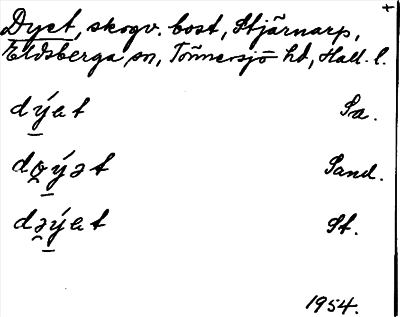 Dyet, skogv. bost, Stjärnarp,
Eldsberga sn, Tönnersjö hd, Hall. l.
dýet Sa.
Sand.
St.
1954.